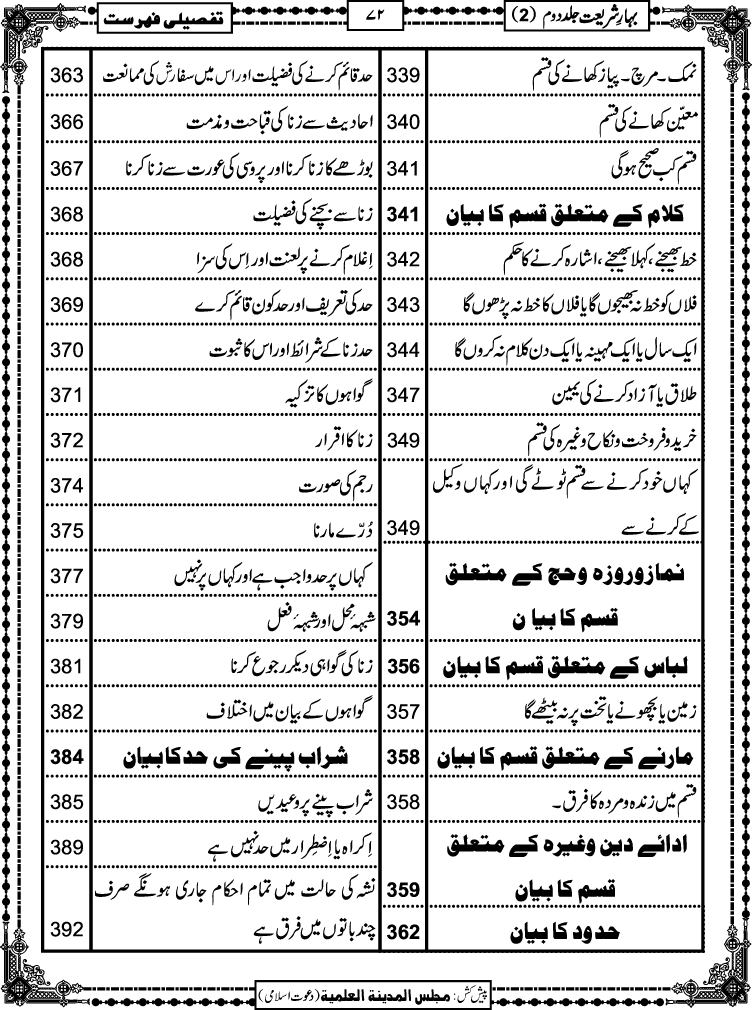 بہارِ شریعت جلد دوم (2)
۷۲
تفصیلی فہرست
نمک۔ مرچ۔ پیاز کھانے کی قسم 339
معیّن کھانے کی قسم 340
قسم کب صحیح ہوگی 341
کلام کے متعلق قسم کا بیان 341
خط بھیجنے، کہلا بھیجنے، اشارہ کرنے کا حکم 342
فلاں کو خط نہ بھیجوں گا یا فلاں کا خط نہ پڑھوں گا 343
ایک سال یا ایک مہینہ یا ایک دن کلام نہ کروں گا 344
طلاق یا آزاد کرنے کی یمین 347
خرید و فروخت و نکاح وغیرہ کی قسم 349
کہاں خود کرنے سے قسم ٹوٹے گی اور کہاں وکیل
کے کرنے سے 349
نماز و روزہ و حج کے متعلق
قسم کا بیا ن 354
لباس کے متعلق قسم کا بیان 356
زمین یا بچھونے یا تخت پر نہ بیٹھے گا 357
مارنے کے متعلق قسم کا بیان 358
قسم میں زندہ و مردہ کا فرق۔ 358
ادائے دین وغیرہ کے متعلق
قسم کا بیان 359
حدود کا بیان 362
حد قائم کرنے کی فضیلت اور اس میں سفارش کی ممانعت 363
احادیث سے زنا کی قباحت و مذمت 366
بوڑھے کا زنا کرنا اور پروسی کی عورت سے زنا کرنا 367
زنا سے بچنے کی فضیلت 368
اِغلام کرنے پر لعنت اور اِس کی سزا 368
حد کی تعریف اور حد کون قائم کرے 369
حد زنا کے شرائط اور اس کا ثبوت 370
گواہوں کا تزکیہ 371
زنا کا اقرار 372
رجم کی صورت 374
دُرّے مارنا 375
کہاں پر حد واجب ہے اور کہاں پر نہیں 377
شبہۂ محل اور شبہۂ فعل 379
زنا کی گواہی دیکر رجوع کرنا 381
گواہوں کے بیان میں اختلاف 382
شراب پینے کی حد کا بیان 384
شراب پینے پر وعیدیں 385
اِکراہ یا اِضطِرار میں حد نہیں ہے 389
نشہ کی حالت میں تمام احکام جاری ہونگے صرف
چند باتوں میں فرق ہے 392
پیش کش: مجلس المدینة العلمیة (دعوت اسلامی)